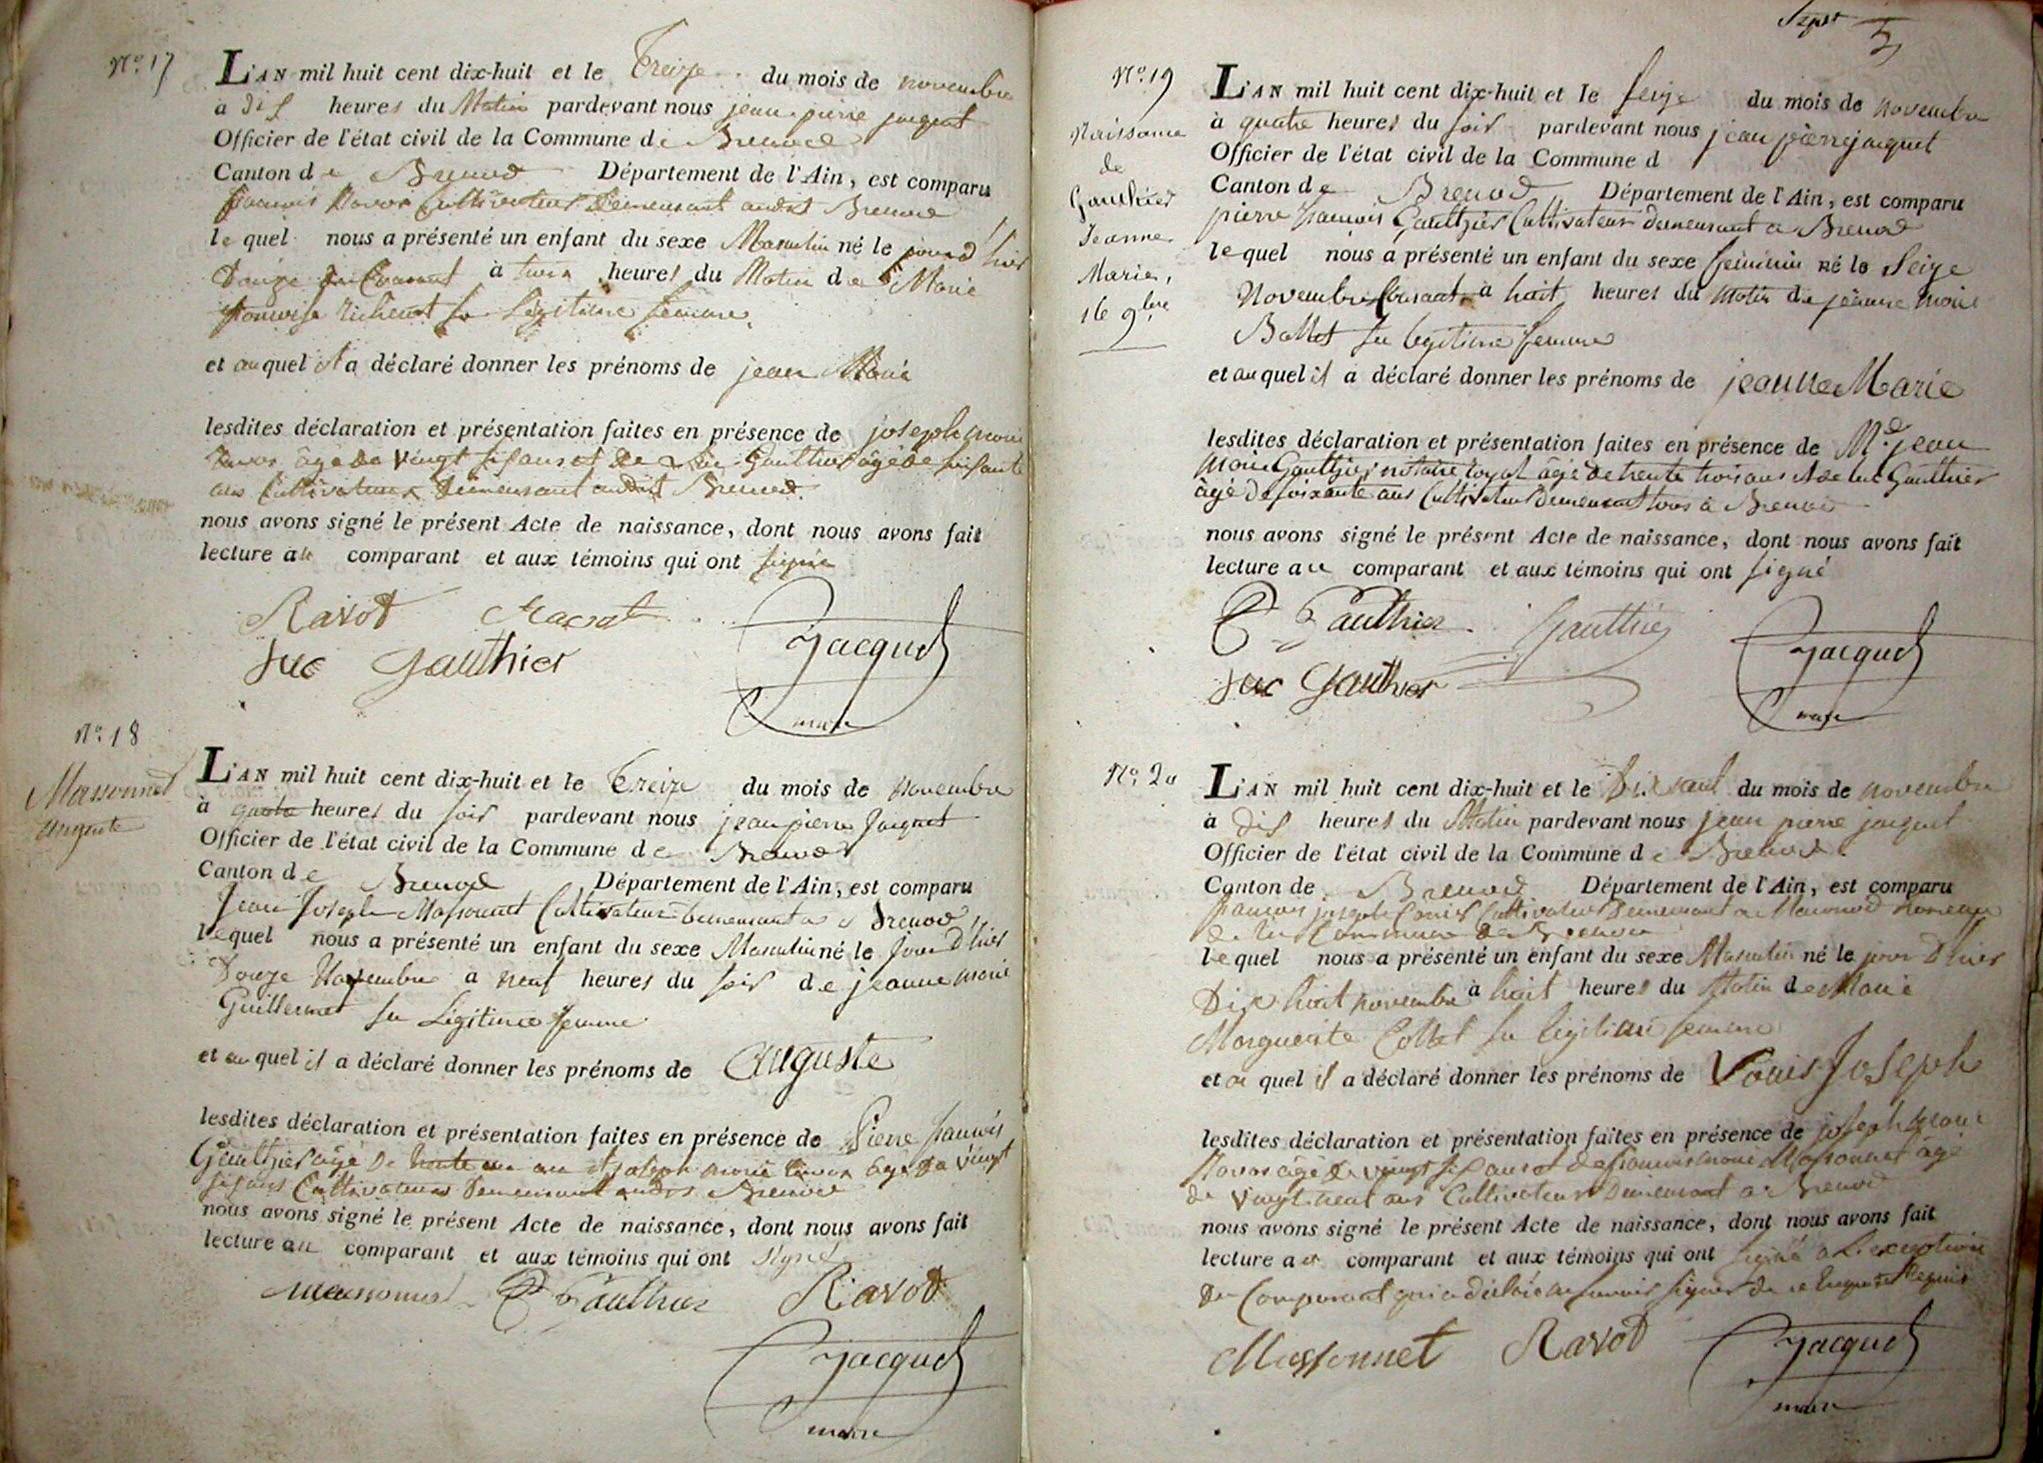 Nº 17
L'AN mil huit cent dix-huit et le Treize du mois de novembre
à dix heures du Matin pardevant nous jean pierre jacquet
Officier de l'état civil de la Commune de Brenod
Canton de Brenod Département de l'Ain, est comparu
francois Ravot Cultivateur Demeurant audit Brenod
lequel nous a présenté un enfant du sexe Masculin né le jour d'hier
Douze du Courant à trois heures du Matin de Marie
francoise Sa Légitime femme
et auquel il a déclaré donner les prénoms de jean Marie
lesdites déclaration et présentation faites en présence de joseph marie
Ravot âgé de Vingt six ans et de Luc Gauthier âgé de soixante
ans Cultivateurs Demeurant audit Brenod
nous avons signé le présent Acte de naissance, dont nous avons fait
lecture au comparant et aux témoins qui ont signé
Ravot Ravot
Luc Gauthier Jacquet
maire
Nº 18
Massonnet
auguste
L'AN mil huit cent dix-huit et le Treize du mois de novembre
à quatre heures du soir pardevant nous jean pierre Jacquet
Officier de l'état civil de la Commune de Brenod
Canton de Brenod Département de l'Ain, est comparu
Jean Joseph Massonnet Cultivateur Demeurant a Brenod
lequel nous a présenté un enfant du sexe Masculin né le Jour D'hier
Douze Novembre a neuf heures du soir de jeanne marie
Guillermet sa Légitime femme
et auquel il a déclaré donner les prénoms de auguste
lesdites déclaration et présentation faites en présence de Pierre francois
Gauthier âgé De trente un an et joseph marie Ravot âgé De Vingt
six ans Cultivateurs Demeurant audit Brenod
nous avons signé le présent Acte de naissance, dont nous avons fait
lecture au comparant et aux témoins qui ont signé
Massonnet P F Gauthier Ravot
Jacquet
maire
5
Nº 19
Naissance
de
Gauthier
Jeanne
Marie,
16 9bre
L'AN mil huit cent dix-huit et le seize du mois de novembre
à quatre heures du soir pardevant nous jean pierre jacquet
Officier de l'état civil de la Commune d
Canton de Brenod Département de l'Ain, est comparu
pierre francois Gauthier Cultivateur demeurant a Brenod
lequel nous a présenté un enfant du sexe feminin né le Seize
Novembre Courant à huit heures du Matin de jeanne marie
Ballet sa legitime femme
et auquel il a déclaré donner les prénoms de jeanne Marie
lesdites déclaration et présentation faites en présence de Me jean
marie Gauthier notaire royal âgé de trente trois ans et de luc Gauthier
âgé de soixante ans Cultivateur demeurant tous a Brenod
nous avons signé le présent Acte de naissance, dont nous avons fait
lecture au comparant et aux témoins qui ont signé
P F Gauthier Gauthier
Luc Gauthier Jacquet
maire
Nº 20
L'AN mil huit cent dix-huit et le Dix neuf du mois de novembre
à dix heures du Matin pardevant nous jean pierre jacquet
Officier de l'état civil de la Commune de Brenod
Canton de Brenod Département de l'Ain, est comparu
francois joseph Cultivateur Demeurant a hameau
de la Commune de Brenod
lequel nous a présenté un enfant du sexe Masculin né le jour D'hier
Dix huit novembre à huit heures du Matin de Marie
Marguerite Collet sa légitime femme
et auquel il a déclaré donner les prénoms de Louis Joseph
lesdites déclaration et présentation faites en présence de joseph marie
Ravot âgé De vingt six ans et de francois marie Massonnet âgé
de Vingt neuf ans Cultivateurs Demeurant a Brenod
nous avons signé le présent Acte de naissance, dont nous avons fait
lecture au comparant et aux témoins qui ont signé a l'exception
Du Comparant qui a déclaré ne savoir signer de ce Enquis et Requis
Massonnet Ravot Jacquet
maire